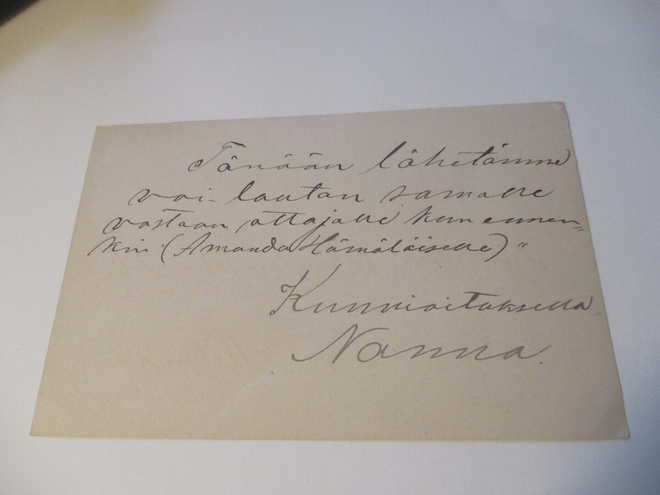 Tänään lähetämme
voi-lautan samalle
vastaan ottajalle kun ennen-
kin (Amanda Hämäläiselle)"
Kunnioituksella
Nanna.